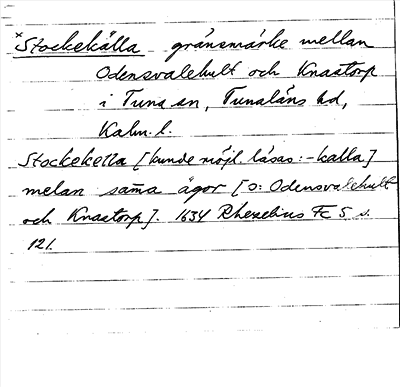 *Stockekälla gränsmärke mellan
Odensvalehult och Knastorp
i Tuna sn, Tunaläns hd,
Kalm. l.
Stockekella [kunde möjl. läsas: -kalla]
melan sam̄a ägor [ɔ: Odensvalehult
och Knastorp]. 1634 Rhezelius Fc 5 s.
121.